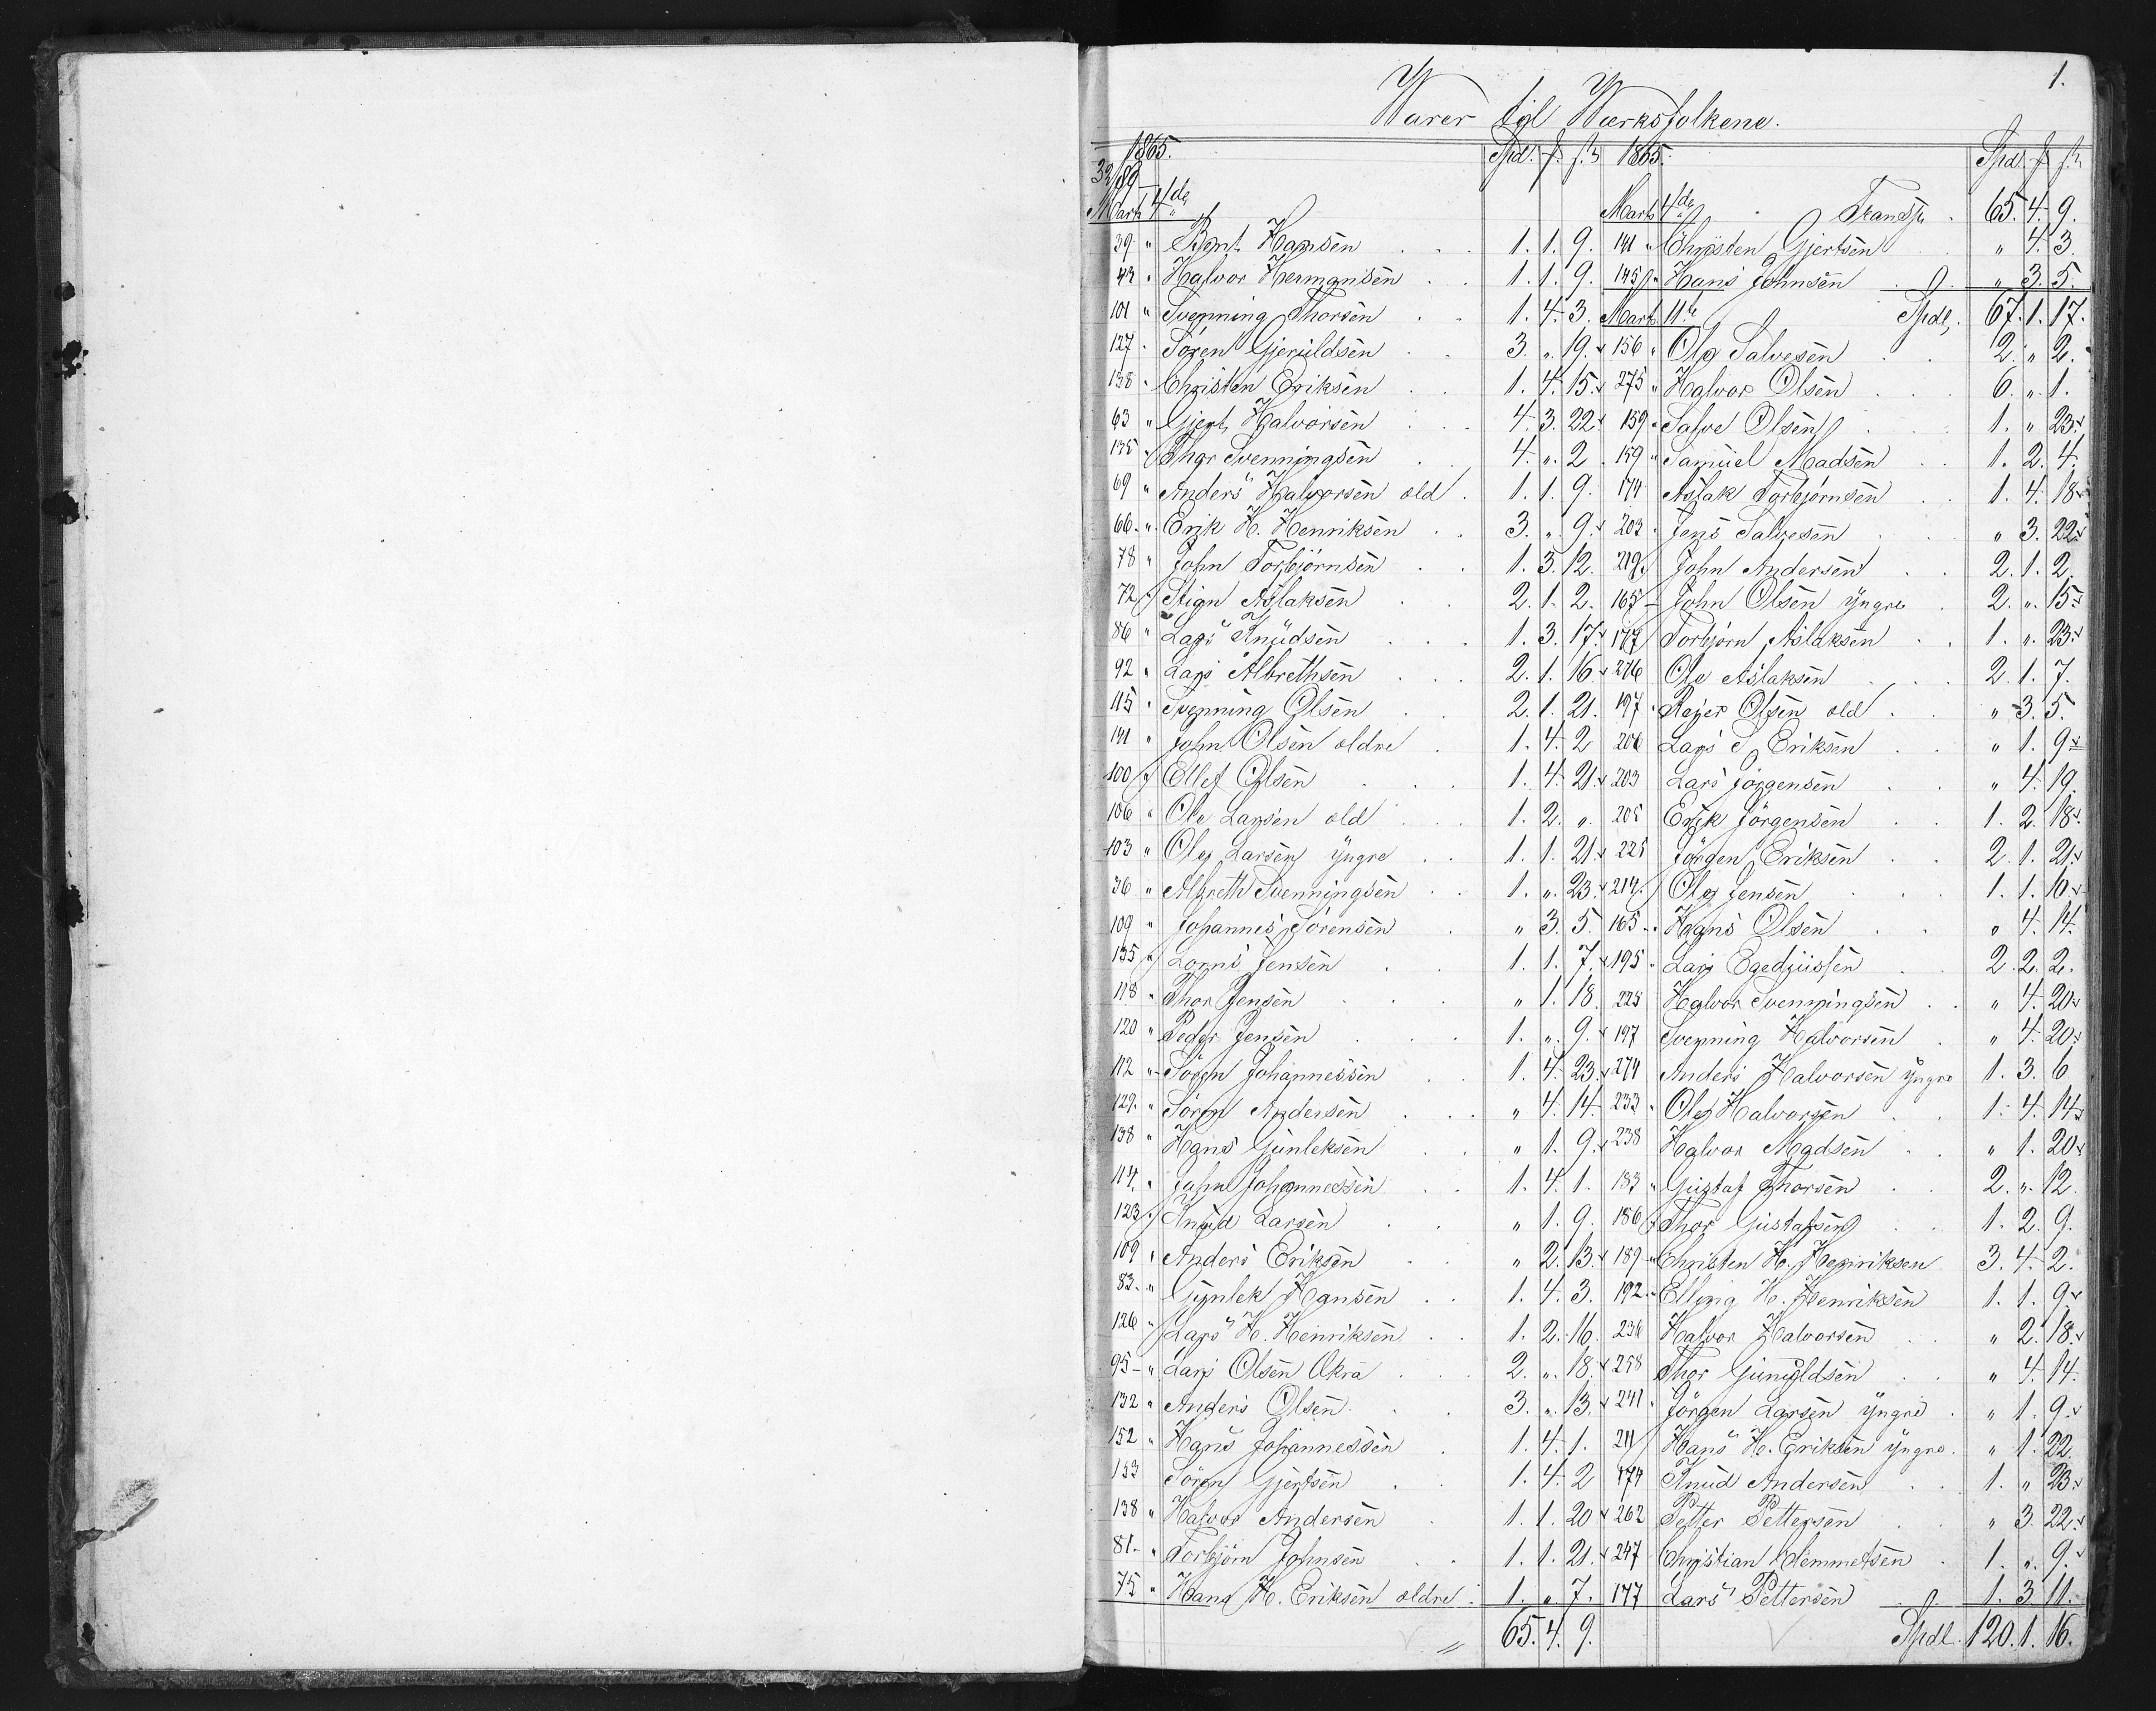 1.
Varer til Værksfolkene.
1865. Spd. f. ß
32/89
Marts 4de
39 " Bent Hansen 1. 1. 9.
42 " Halvor Hermansen 1. 1. 9.
101 " Svenning Thorsen 1. 4. 3.
127 " Sören Gjeruldsen 3. " 19.
138 " Christen Eriksen 1. 4. 15.
63 " Gjert Halvorsen 4. 3. 22.
135 " Thor Svenningsen 4. " 2.
69 " Anders Halvorsen old. 1. 1. 9.
66 " Erik H. Henriksen 3. " 9.
78 " John Torbjörnsen 1. 3. 12.
72 " Stign Aslaksen 2. 1. 2.
86 " Lars Knudsen 1. 3. 17.
92 " Lars Albrethsen 2. 1. 16
115 " Svenning Olsen 2. 1. 21.
141 " John Olsen ældre 1. 4. 2
100 " Ellef Olsen 1. 4. 21.
106 " Ole Larsen old 1. 2. "
103 " Ole Larsen yngre 1. 1. 21.
36 " Albreth Svenningsen 1. " 23.
109 " Johannes Sörensen " 3. 5.
135 " Lorns Jensen 1. 1. 7.
118 " Thor Jensen " 1. 18.
120 " Peder Jensen 1. " 9.
112 " Sören Johannessen 1. 4. 23.
129 " Sören Andersen " 4. 14.
138 " Hans Gunleksen " 1. 9.
114 " John Johannessen 1. 4. 1.
123 " Knud Larsen " 1. 9.
109 " Anders Eriksen " 2. 13.
83 " Gunlek Hansen 1. 4. 3.
126 " Lars H. Henriksen 1. 2. 16.
95 " Lars Olsen Okra 2. " 18.
132 " Anders Olsen 3. " 13.
152 " Hans Johannessen 1. 4. 1.
153 " Sören Gjertsen 1. 4. 2
138 " Halvor Andersen 1. 1. 20
81 " Torbjörn Johnsen 1. 1. 21.
75 " Hans H. Eriksen ældre 1. " 7.
65. 4. 9.
1865. Spd. f. ß
Marts 4de Transp. 65. 4. 9.
141 " Christen Gjertsen " 4. 3.
145 " Hans Johnsen " 3. 5.
Marts 11te Spdl. 67. 1. 17.
156 " Ole Salvesen 2. " 2.
275 " Halvor Olsen 6. " 1.
159 " Salve Olsen 1. " 23.
159 " Samuel Madsen 1. 2. 4.
174 Aslak Torbjörnsen 1. 4. 18
203 " Jens Salvesen " 3. 22.
219 John Andersen 2. 1. 2.
165 John Olsen yngre 2. " 15.
177 Torbjörn Aslaksen 1. " 23.
276 Ole Aslaksen 2. 1. 7.
197 " Rejer Olsen old " 3. 5.
206 Lars E. Eriksen " 1. 9.
203 Lars Jörgensen " 4. 19.
205 Erik Jörgensen 1. 2. 18.
225 Jörgen Eriksen 2. 1. 21.
214 Ole Jensen 1. 1. 10.
165 " Hans Olsen " 4. 14.
195 " Lars Egediussen 2. 2. 2.
225 Halvor Svenningsen " 4. 20.
197 Svenning Halvorsen " 4. 20.
274 Anders Halvorsen yngre 1. 3. 6
233 " Ole Halvorsen 1. 4. 14.
238 Halvor Madsen " 1. 20.
183 " Gustaf Thorsen 2. " 12.
186 " Thor Gustafsen 1. 2. 9.
189 " Christen H. Henriksen 3. 4. 2.
192 " Elling H. Henriksen 1. 1. 9.
236 Halvor Halvorsen " 2. 18.
258 Thor Gunuldsen " 4. 14.
241 " Jörgen Larsen yngre " 1. 9.
211 Hans H. Eriksen yngre " 1. 22
174 Knud Andersen 1. " 23.
262 Petter Pettersen " 3. 22.
247 Christian Clemmetsen 1. " 9.
177 Lars Pettersen 1. 3. 11.
Spdl. 120. 1. 16.